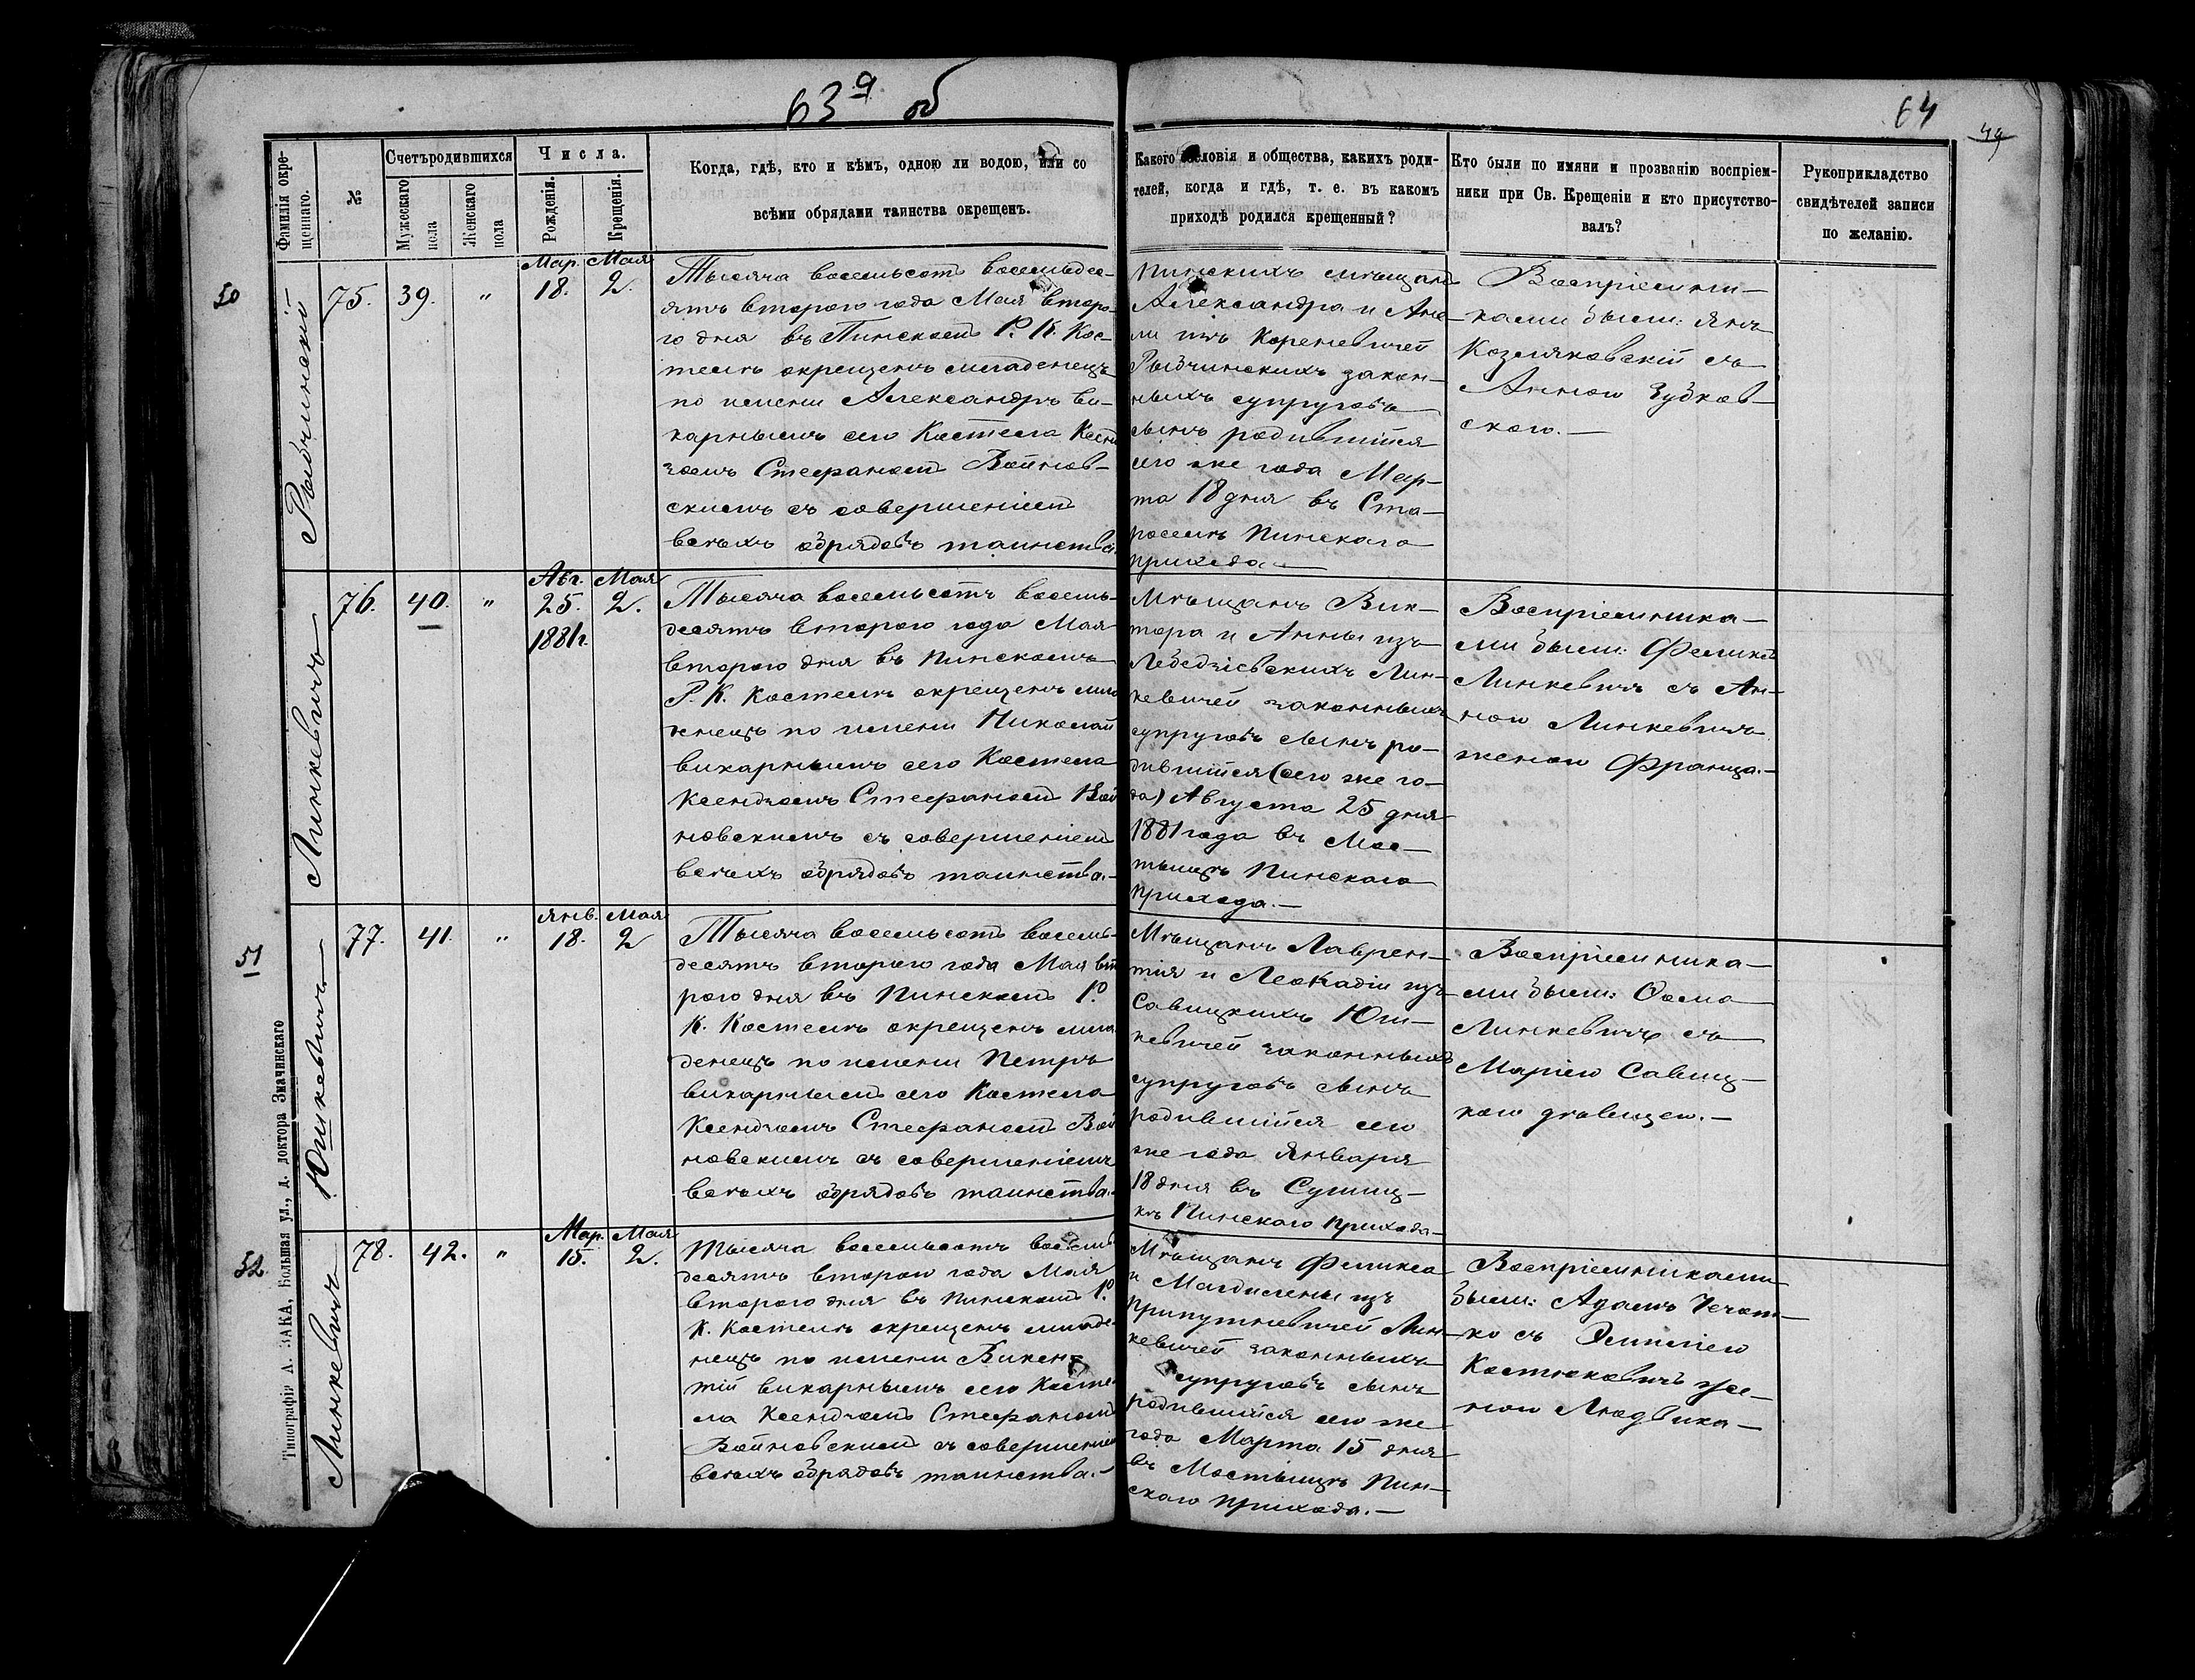 63 об
64
49
Фамилія окре-
щеннаго.
№
Счетъ родившихся
Мужескаго
пола
Женскаго
пола
Числа.
Рожденія.
Крещенія.
Когда, гдѣ, кто и кѣмъ, одною ли водою, или со
всѣми обрядами таинства окрещенъ.
Какого сословія и общества, какихъ роди-
телей, когда и гдѣ, т. е. въ какомъ
приходѣ родился крещенный?
Кто были по имяни и прозванію воспріем-
ники при Св. Крещеніи и кто присутство-
валъ?
Рукоприкладство
свидѣтелей записи
по желанію.
50
Рыбчинскій
75.
39.
"
Мар.
18.
Мая
2.
Тысяча восемьсотъ восемьдес-
ятъ второго года Мая второ-
го дня въ Пинскомъ Р. К. Кос-
телѣ окрещенъ младенецъ
по имени Александръ ви-
карнымъ сего Костела Ксен-
дзомъ Стефаномъ Войнов-
скимъ съ совершеніемъ
всѣхъ обрядовъ таинства.
Пинскихъ мѣщанъ
Александра и Ане-
ли изъ Кореневичей
Рыбчинскихъ закон-
ныхъ супруговъ
сынъ родившійся
сего же года Мар-
та 18 дня въ Ста-
роселѣ Пинскаго
прихода.—
Воспріемни-
ками были: Янъ
Козляковскій съ
Анною Зубков-
скою.—
Линкевичъ
76.
40.
"
Авг.
25.
1881г.
Мая
2.
Тысяча восемьсотъ восемь-
десятъ второго года Мая
второго дня въ Пинскомъ
Р. К. Костелѣ окрещенъ мла-
денецъ по имени Николай
викарнымъ сего Костела
Ксендзомъ Стефаномъ Вой-
новскимъ съ совершеніемъ
всѣхъ обрядовъ таинства.—
Мѣщанъ Вик-
тора и Анны изъ
Лебедзіевскихъ Лин-
кевичей законныхъ
супруговъ сынъ ро-
дившійся (сего же го-
да) Августа 25 дня
1881 года въ Мос-
тыцѣ Пинскаго
прихода.—
Воспріемника-
ми были: Феликсъ
Линкевичъ съ Ан-
ною Линкевичъ
женою Франца.—
51
Юшкевичъ
77.
41.
"
Янв.
18.
Мая
2
Тысяча восемьсотъ восемь-
десятъ второго года Мая вто-
рого дня въ Пинскомъ Р.
К. Костелѣ окрещенъ мла-
денецъ по имени Петръ
викарнымъ сего Костела
Ксендзомъ Стефаномъ Вой-
новскимъ съ совершеніемъ
всѣхъ обрядовъ таинства.
Мѣщанъ Лаврен-
тія и Леокадіи изъ
Савицкихъ Юш-
кевичей законныхъ
супруговъ сынъ
родившійся сего
же года Января
18 дня въ Сушиц-
кѣ Пинскаго прихода
Воспріемника-
ми были: Ѳома
Линкевичъ съ
Маріею Савиц-
кою дѣвицею.—
52
Линкевичъ
78.
42.
"
Мар.
15.
Мая
2.
Тысяча восемьсотъ восемь-
десятъ второго года Мая
второго дня въ Пинскомъ Р.
К. Костелѣ окрещенъ младе-
нецъ по имени Викен-
тій викарнымъ сего Косте-
ла Ксендзомъ Стефаномъ
Войновскимъ съ совершеніемъ
всѣхъ обрядовъ таинства.—
Мѣщанъ Феликса
и Магдалены изъ
Припутневичей Лин-
кевичей законныхъ
супруговъ сынъ
родившійся сего же
года Марта 15 дня
въ Мостыцѣ Пин-
скаго прихода.—
Воспріемниками
были: Адамъ Чечот-
ко съ Эмиліею
Костюковичъ же-
ною Людвика—
Типографія А. ЗАКА, Большая ул., д. доктора Змачинскаго